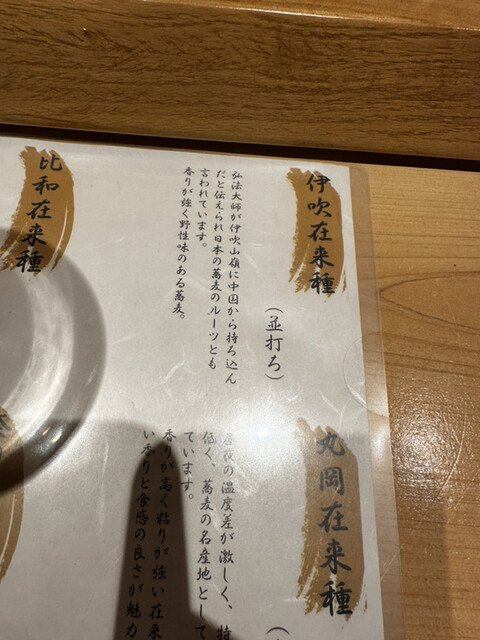 伊吹在来種
(並打ち)
弘法大師が伊吹山嶺に中国から持ち込ん
だと伝えられ日本の蕎麦のルーツとも
言われています。
香りが強く野性味のある蕎麦。
比和在来種
丸岡在来種
夜の温度差が激しく、特
低く、蕎麦の名産地として
ています。
香りが高く粘りが強い在来
い香りと食感の良さが魅力